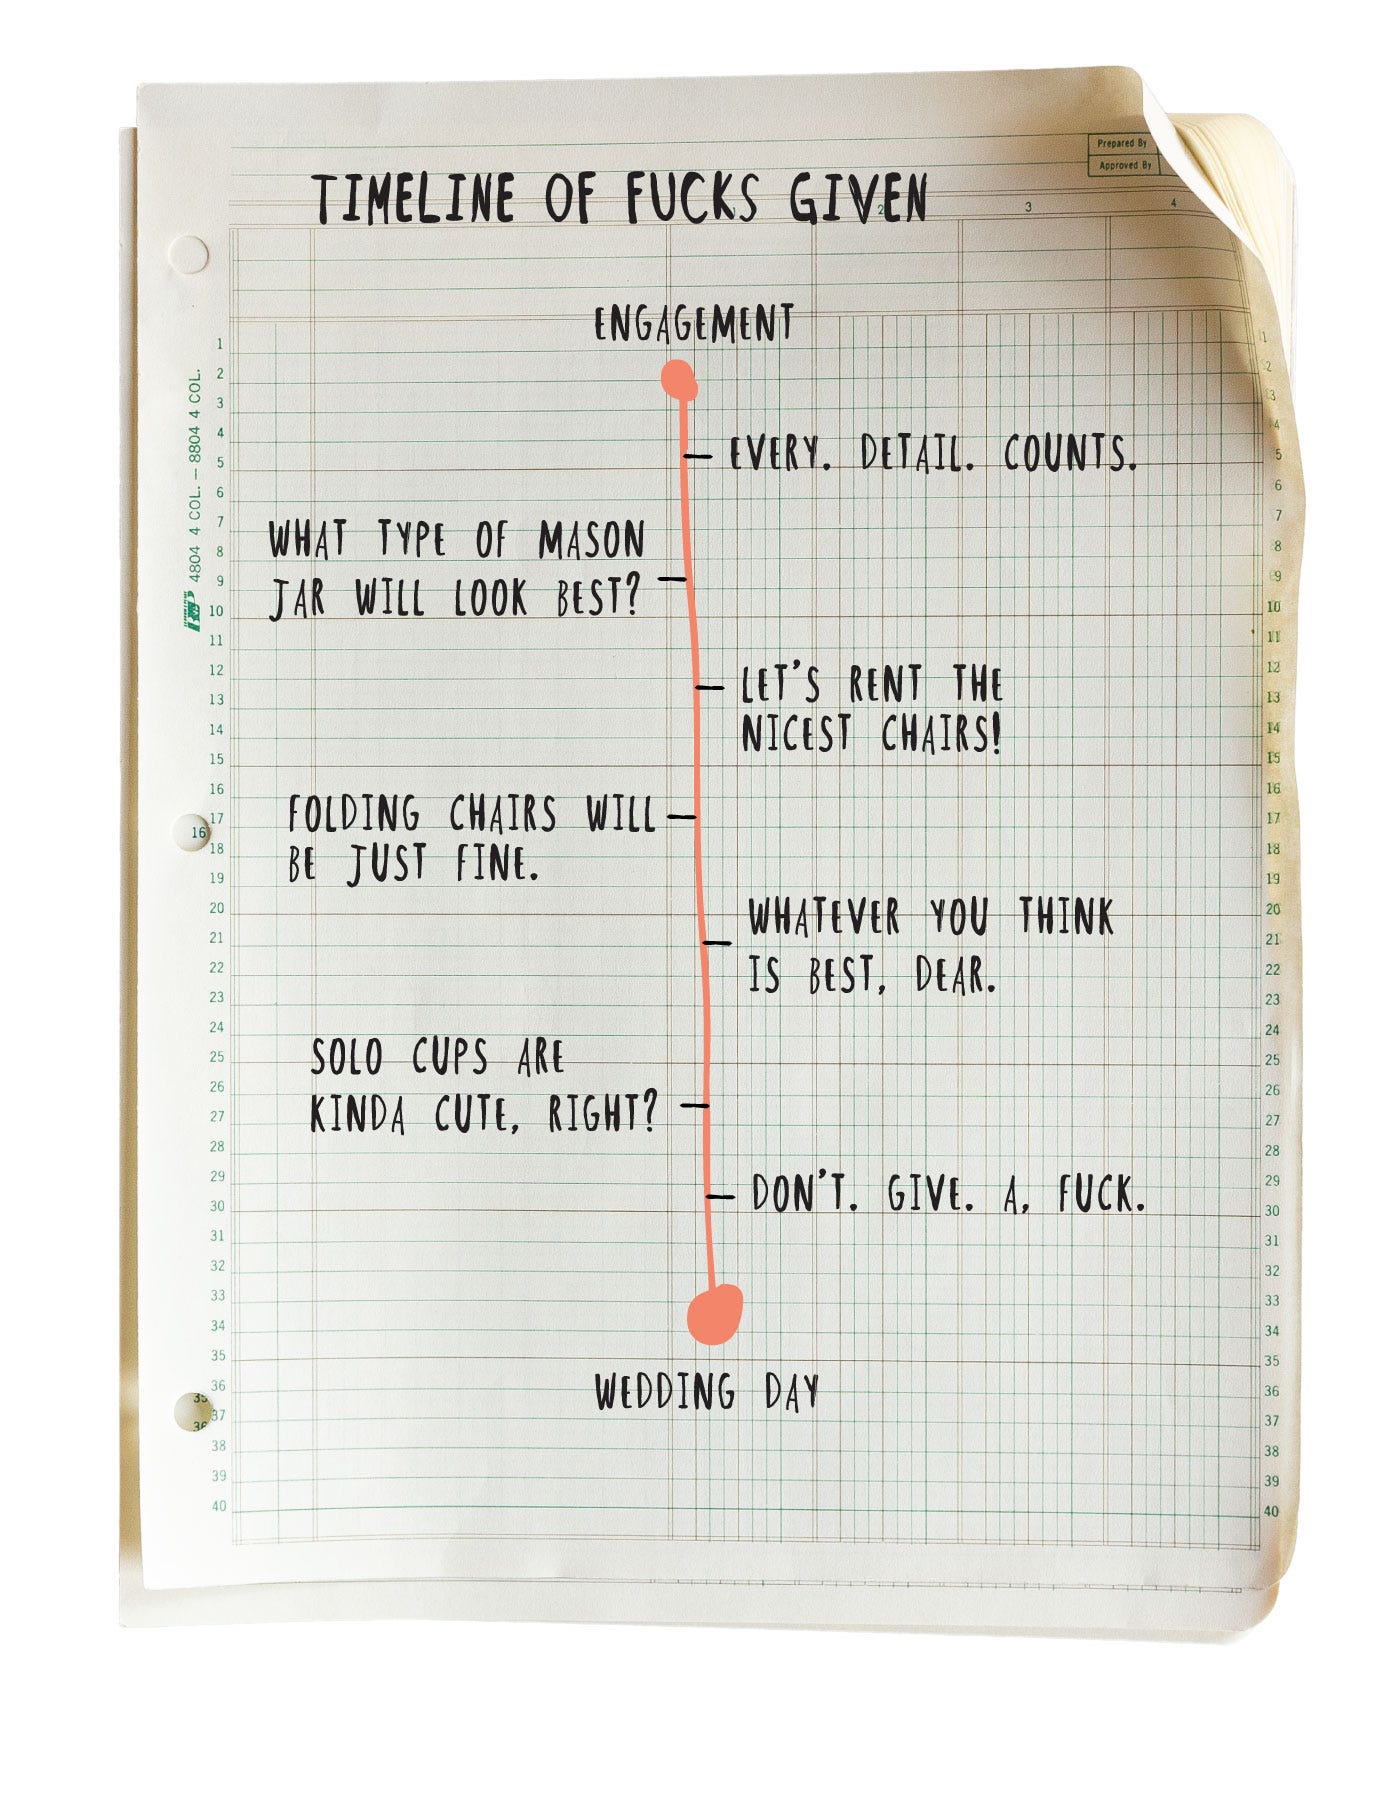 Prepared By
Approved By
TIMELINE OF FUCKS GIVEN
2
3
4
ENGAGEMENT
EVERY. DETAIL. COUNTS.
WHAT TYPE OF MASON
JAR WILL LOOK BEST?
LET'S RENT THE
NICEST CHAIRS!
FOLDING CHAIRS WILL
BE JUST FINE.
WHATEVER YOU THINK
IS BEST, DEAR.
SOLO CUPS ARE
KINDA CUTE, RIGHT?
DON'T. GIVE. A. FUCK.
WEDDING DAY
4804 4 COL. — 8804 4 COL.
1
2
3
4
5
6
7
8
9
10
11
12
13
14
15
16
17
18
19
20
21
22
23
24
25
26
27
28
29
30
31
32
33
34
35
36
37
38
39
40
16
35
36
1
2
3
4
5
6
7
8
9
10
11
12
13
14
15
16
17
18
19
20
21
22
23
24
25
26
27
28
29
30
31
32
33
34
35
36
37
38
39
40